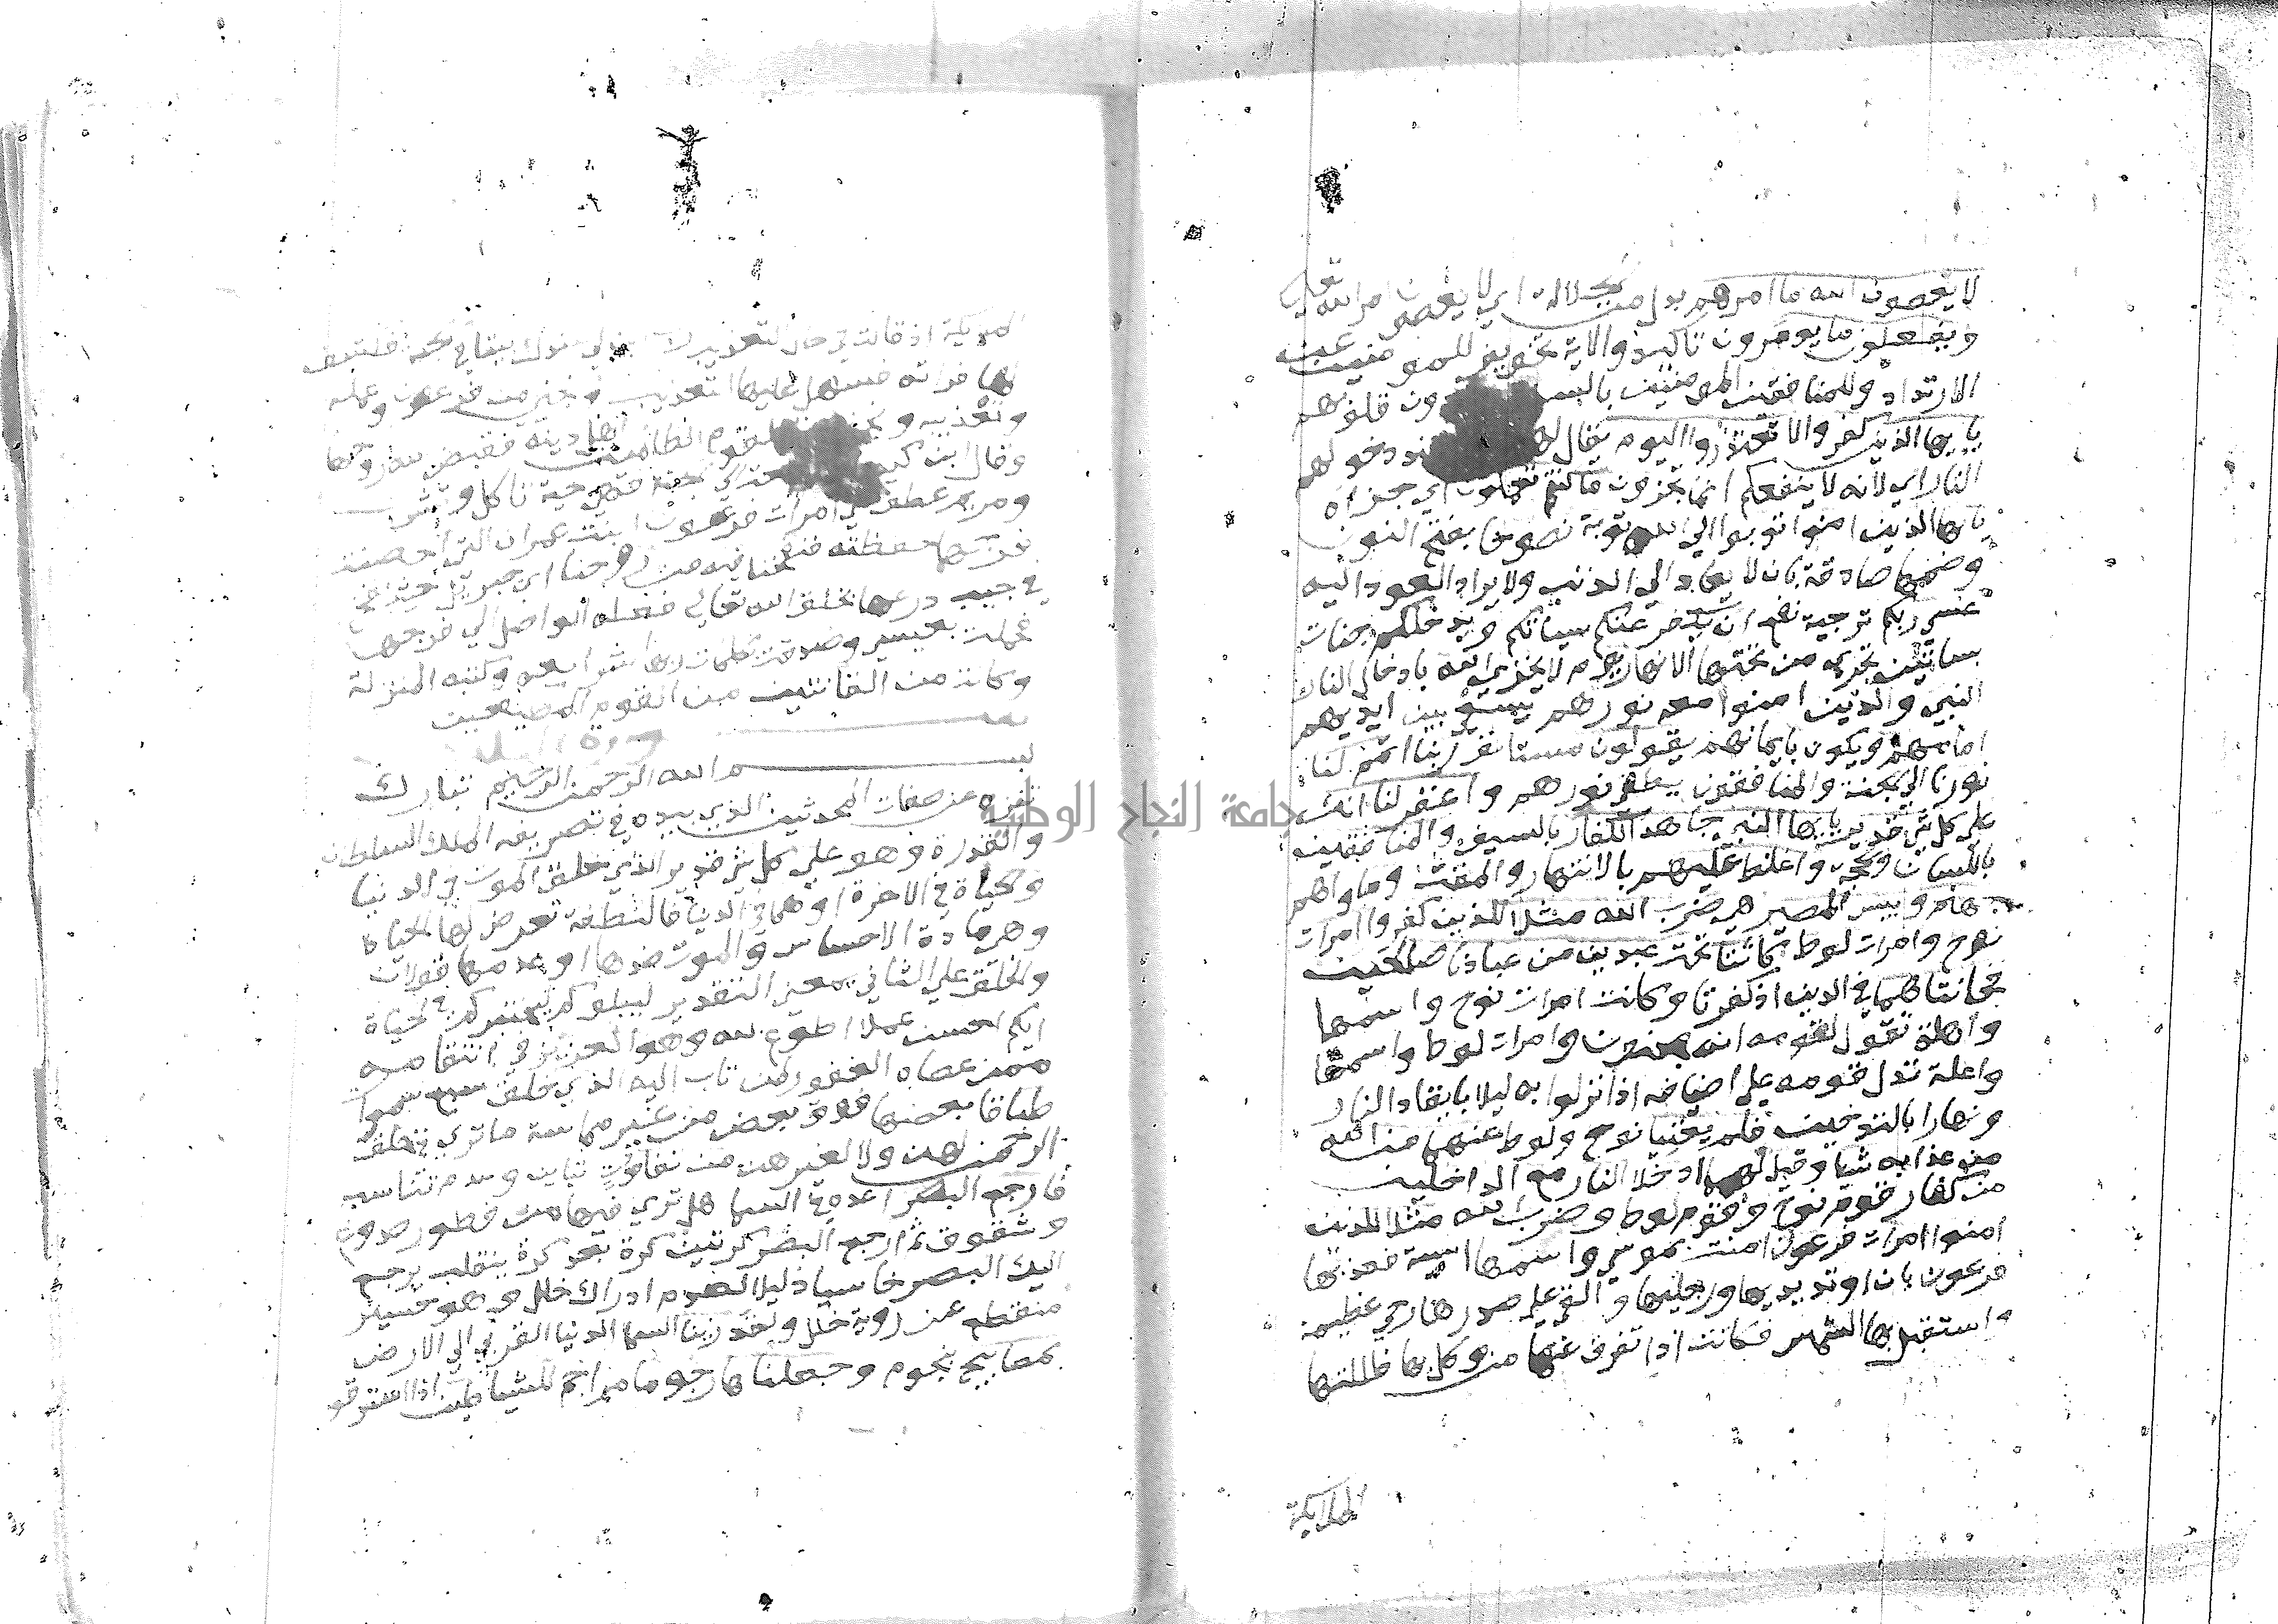 لا يعصون الله ما امرهم بدل من الجلالة اي لا يعصون امر الله تعالى
ويفعلون ما يومرون تاكيد والاية تخويف للمومنين عن
الارتداد وللمنافقين المومنين بالسنتهم دون قلوبهم
يايها الذين كفروا لا تعتذروا اليوم يقال لهم عند دخولهم
النار اي لانه لا ينفعكم انما تجزون ما كنتم تعملون اي جزاه
يايها الذين امنوا توبوا الي الله توبة نصوحا بفتح النون
وضمها صادقة بان لا يعاد الي الذنب ولا يراد العود اليه
عسي ربكم ترجية تقع ان يكفر عنكم سياتكم ويدخلكم جنات
بساتين تجري من تحتها الانهار يوم لا يخزي الله بادخال النار
النبي والذين امنوا معه نورهم يسعي بين ايديهم
امامهم ويكون بايمانهم يقولون مستانف ربنا اتمم لنا
نورنا الي الجنة والمنافقون يطفي نورهم واغفر لنا انك
علي كل شي قدير يايها النبي جاهد الكفار بالسيف والمنافقين
باللسان والحجة واغلظ عليهم بالانتهار والمقت وماواهم
جهنم وبيس المصير هي ضرب الله مثلا للذين كفروا امرات
نوح وامرات لوط كانتا تحت عبدين من عبادنا صالحين
فخانتاهما في الدين اذ كفرتا وكانت امرات نوح واسمها
واهلة تقول لقومه انه مجنون وامرات لوط واسمها
واعلة تدل قومه علي اضيافه اذا نزلوا به ليلا بايقاد النار
ونهارا بالتدخين فلم يغنيا نوح ولوط عنهما من الله
من عذابه شيا وقيل لهما ادخلا النار مع الداخلين
من كفار قوم نوح وقوم لوط وضرب الله مثلا للذين
امنوا امرات فرعون امنت بموسي واسمها اسية فعذبها
فرعون بان اوتد يديها ورجليها والقي علي صدرها رحي عظيمة
واستقبل بها الشمس فكانت اذا تفرق عنها من وكل بها ظللتها
الملايكة
الملايكة اذ قالت في حال التعذيب رب ابن لي عندك بيتا في الجنة فكشف
لها فراته فسهل عليها التعذيب ونجني من فرعون وعمله
وتعذيبه ونجني من القوم الظالمين اهل دينه فقبض الله روحها
وقال ابن كيسان رفعت الي الجنة فهي حية تاكل وتشرب
ومريم عطف علي امرات فرعون ابنت عمران التي احصنت
فرجها حفظته فنفخنا فيه من روحنا اي جبريل حيث نفخ
في جيب درعها بخلق الله تعالي فعله الواصل الي فرجها
فحملت بعيسي وصدقت بكلمات ربها شرايعه وكتبه المنزلة
وكانت من القانتين من القوم المطيعين
سورة الملك
بسم الله الرحمن الرحيم تبارك
تنزه عن صفات المحدثين الذي بيده في تصريفه الملك السلطان
والقدرة وهو علي كل شي قدير الذي خلق الموت في الدنيا
والحياة في الاخرة او هما في الدنيا فالنطفة تعرض لها الحياة
وهي مادة الاحساس والموت ضدها او عدمها قولان
والخلق علي الثاني بمعني التقدير ليبلوكم ليختبركم في الحياة
ايكم احسن عملا اطوع لله وهو العزيز في انتقامه
ممن عصاه الغفور لمن تاب اليه الذي خلق سبع سموات
طباقا بعضها فوق بعض من غير مماسة ما تري في خلق
الرحمن لهن ولا لغيرهن من تفاوت تباين وعدم تناسب
فارجع البصر اعده في السما هل تري فيها من فطور صدوع
وشقوق ثم ارجع البصر كرتين كرة بعد كرة ينقلب يرجع
اليك البصر خاسيا ذليلا لعدم ادراك خلل وهو حسير
منقطع عن روية خلل ولقد زينا السما الدنيا القربي الي الارض
بمصابيح بنجوم وجعلناها رجوما مراجم للشياطين اذا استرقوا
جامعة النجاح الوطنية